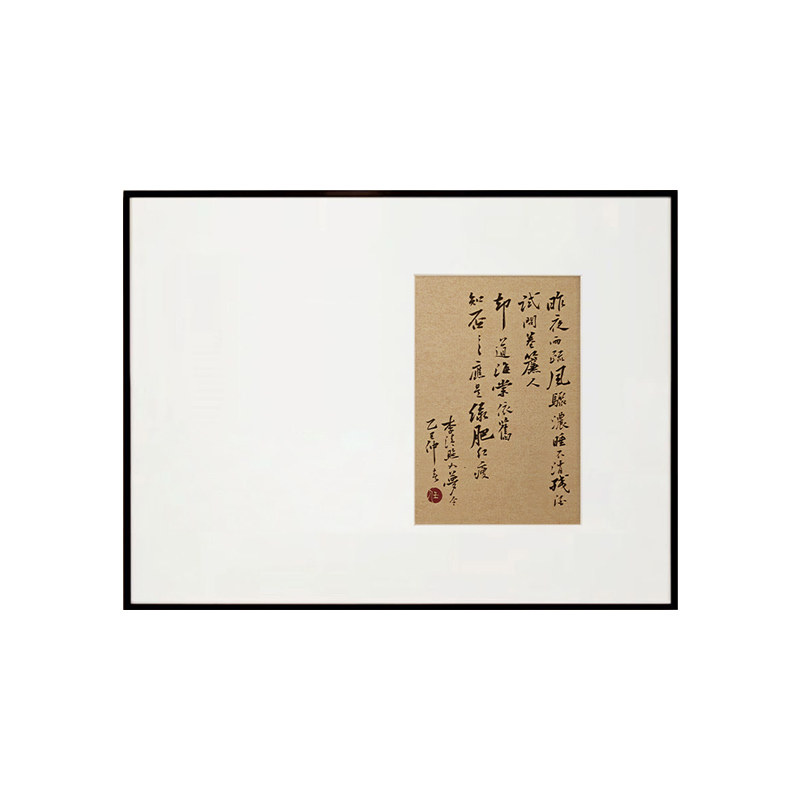 昨夜雨疏風驟濃睡不消殘酒
試問卷簾人
却道海棠依舊
知否〻〻應是綠肥紅瘦
李清照如夢令
乙 仲